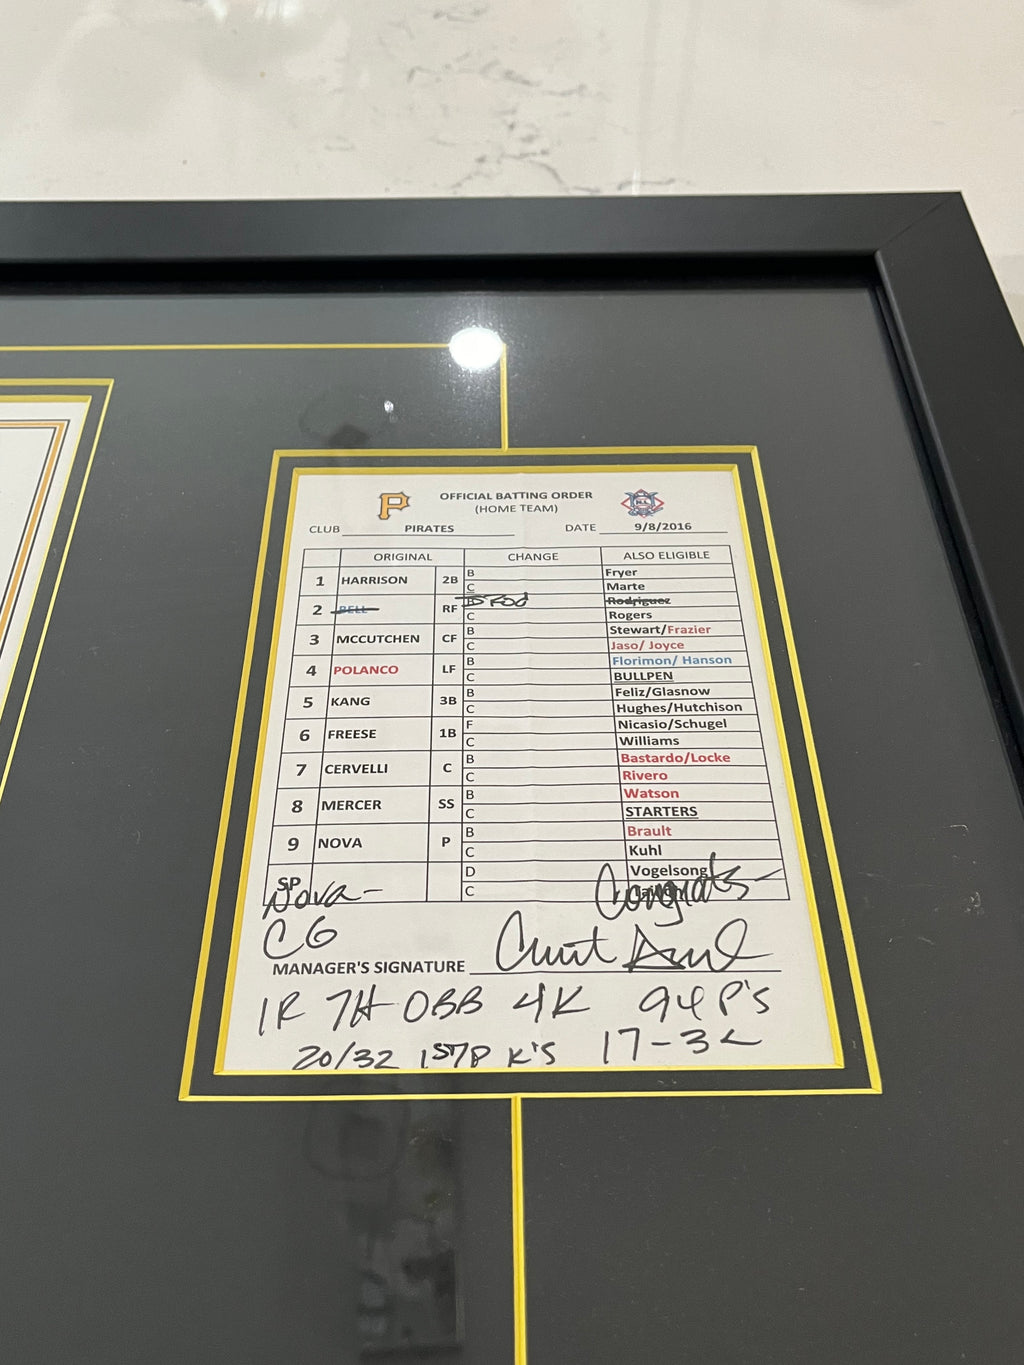 P
OFFICIAL BATTING ORDER
(HOME TEAM)
CLUB PIRATES DATE 9/8/2016
ORIGINAL CHANGE ALSO ELIGIBLE
1 HARRISON 2B B Fryer
C Marte
2 BELL RF B S Rod Rodriguez
C Rogers
3 MCCUTCHEN CF B Stewart/Frazier
C Jaso/ Joyce
4 POLANCO LF B Florimon/ Hanson
C BULLPEN
5 KANG 3B B Feliz/Glasnow
C Hughes/Hutchison
6 FREESE 1B F Nicasio/Schugel
C Williams
7 CERVELLI C B Bastardo/Locke
C Rivero
8 MERCER SS B Watson
C STARTERS
9 NOVA P B Brault
C Kuhl
SP D Vogelsong
C
Nova - Congrats -
CG
MANAGER'S SIGNATURE
1R 7H 0BB 4K 94 P'S
20/32 1STP K'S 17-3<